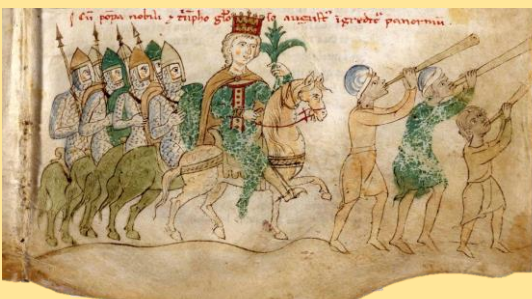 Cū pōpa nobili t̾ūpho gl̄o so august᾽ īgredit᾽ panormū